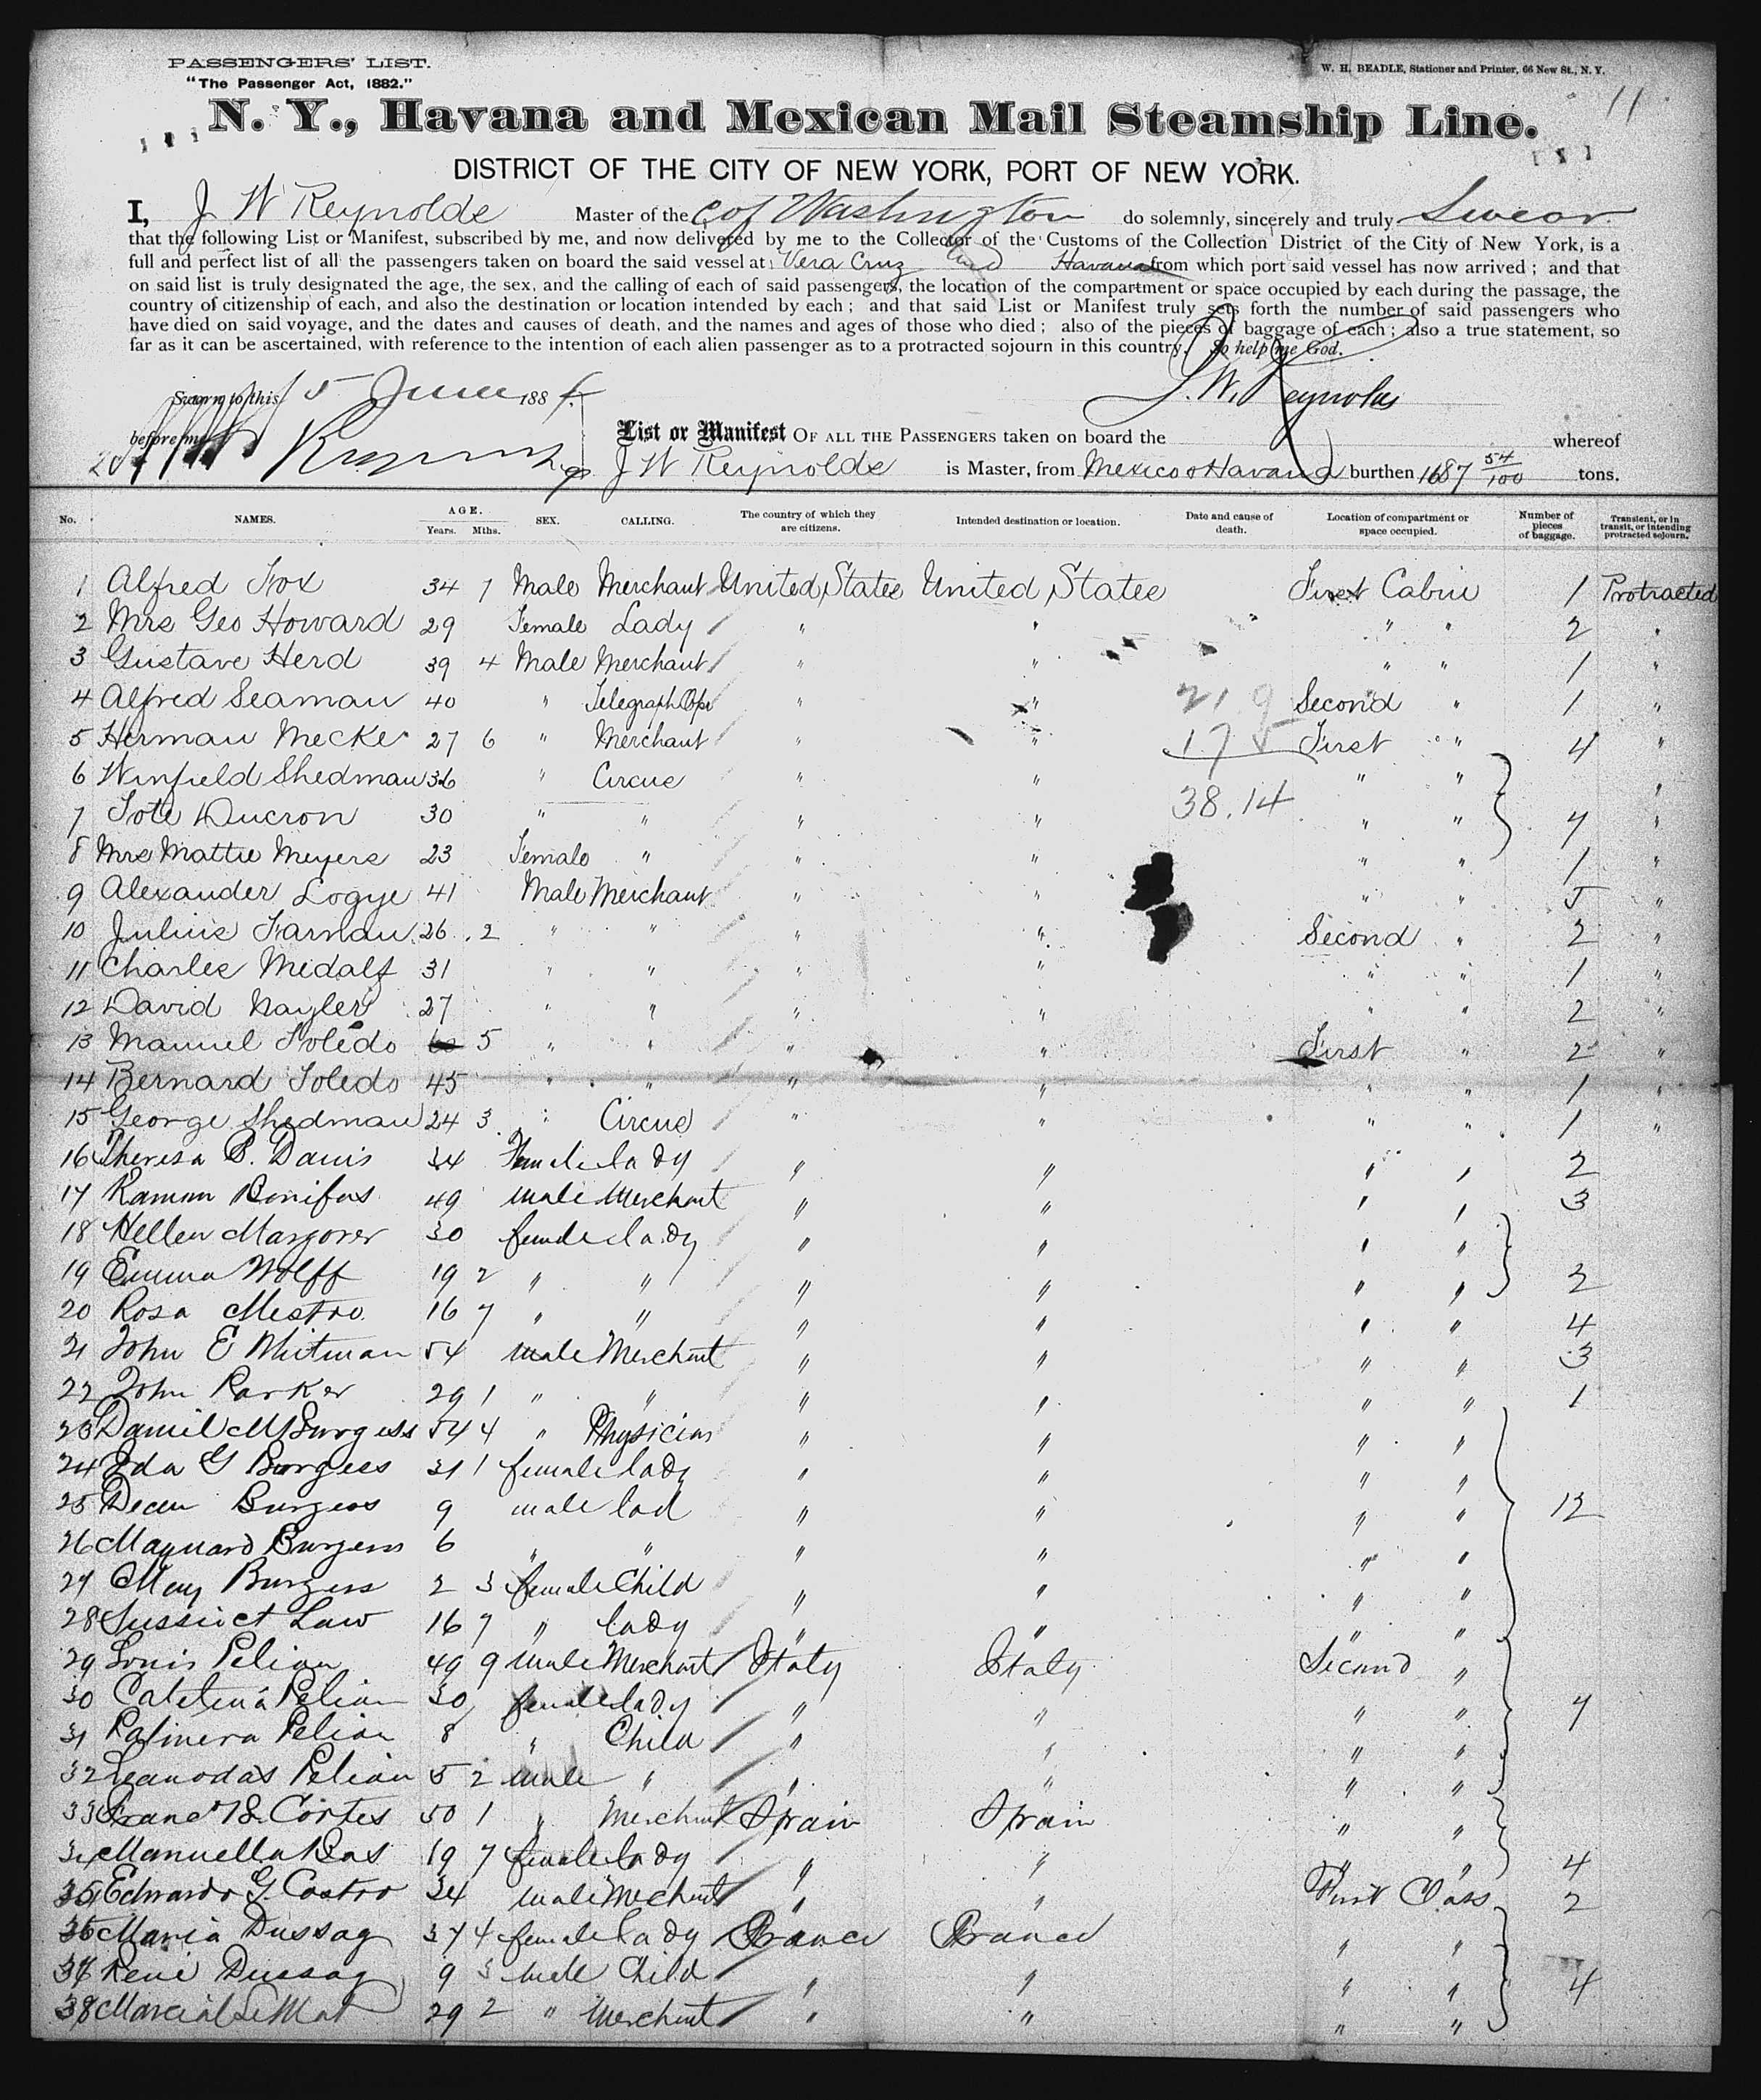 PASSENGERS' LIST.
"The Passenger Act, 1882."
W. H. BEADLE, Stationer and Printer, 66 New St., N. Y.
11
N. Y., Havana and Mexican Mail Steamship Line.
DISTRICT OF THE CITY OF NEW YORK, PORT OF NEW YORK.
I, J W Reynolds Master of the C of Washington do solemnly, sincerely and truly Swear
that the following List or Manifest, subscribed by me, and now delivered by me to the Collector of the Customs of the Collection District of the City of New York, is a
full and perfect list of all the passengers taken on board the said vessel at Vera Cruz and Havana from which port said vessel has now arrived; and that
on said list is truly designated the age, the sex, and the calling of each of said passengers, the location of the compartment or space occupied by each during the passage, the
country of citizenship of each, and also the destination or location intended by each; and that said List or Manifest truly sets forth the number of said passengers who
have died on said voyage, and the dates and causes of death, and the names and ages of those who died; also of the pieces of baggage of each; also a true statement, so
far as it can be ascertained, with reference to the intention of each alien passenger as to a protracted sojourn in this country. So help me God.
Sworn to this 5 June 1884 J. W. Reynolds
before me
List or Manifest OF ALL THE PASSENGERS taken on board the whereof
J W Reynolds is Master, from Mexico & Havana burthen 1687 54/100 tons.
No. NAMES. AGE. Years. Mths. SEX. CALLING. The country of which they are citizens. Intended destination or location. Date and cause of death. Location of compartment or space occupied. Number of pieces of baggage. Transient, or in transit, or intending protracted sojourn.
1 Alfred Fox 34 7 Male Merchant United States United States First Cabin 1 Protracted
2 Mrs Geo Howard 29 Female Lady " " " " 2 "
3 Gustave Herd 39 4 Male Merchant " " " " 1 "
4 Alfred Seaman 40 " Telegraph Opr " " 21 9 Second " 1 "
5 Herman Mecke 27 6 " Merchant " " 17 5 First " 4 "
6 Winfield Shedman 36 " Circus " " " " "
7 Tote Ducron 30 " " " " 38.14 " " 7 "
8 Mrs Mattie Meyers 23 Female " " " " " 1 "
9 Alexander Logye 41 Male Merchant " " " " 5 "
10 Julius Farnau 26 2 " " " " Second " 2 "
11 Charles Medalf 31 " " " " " " 1 "
12 David Nayler 27 " " " " " " 2 "
13 Manuel Toledo 5 " " " " First " 2 "
14 Bernard Toledo 45 " " " " " " 1 "
15 George Shedman 24 3 " Circus " " " " 1 "
16 Theresa B. Davis 34 Female lady " " " " 2
17 Ramon Bonifas 49 male Merchant " " " " 3
18 Hellen Margorer 30 female lady " " " "
19 Emma Wolff 19 2 " " " " " " 2
20 Rosa Mestro 16 7 " " " " " " 4
21 John E Whitman 54 male Merchant " " " " 3
22 John Parker 29 1 " " " " " " 1
23 Daniel M Burgess 54 4 " Physician " " " "
24 Ida G Burgess 31 1 female lady " " " "
25 Dean Burgess 9 male lad " " " " 12
26 Maynard Burgess 6 " " " " " "
27 May Burgess 2 3 female Child " " " "
28 Law 16 7 " lady " " " "
29 Louis Pelian 49 9 male Merchant Italy Italy Second "
30 Pelian 30 female lady " " " " 7
31 Palmera Pelian 8 " Child " " " "
32 Leanodas Pelian 5 2 male " " " " "
33 Cortes 50 1 " Merchant Spain Spain " "
34 Manuella Ras 19 7 female lady " " " " 4
35 Edwardo G. Castro 34 male Merchant " " First Class 2
36 Maria Dussaq 37 4 female lady France France " "
37 René Dussaq 9 3 male Child " " " " 4
38 Marcial 29 2 " Merchant " " " "